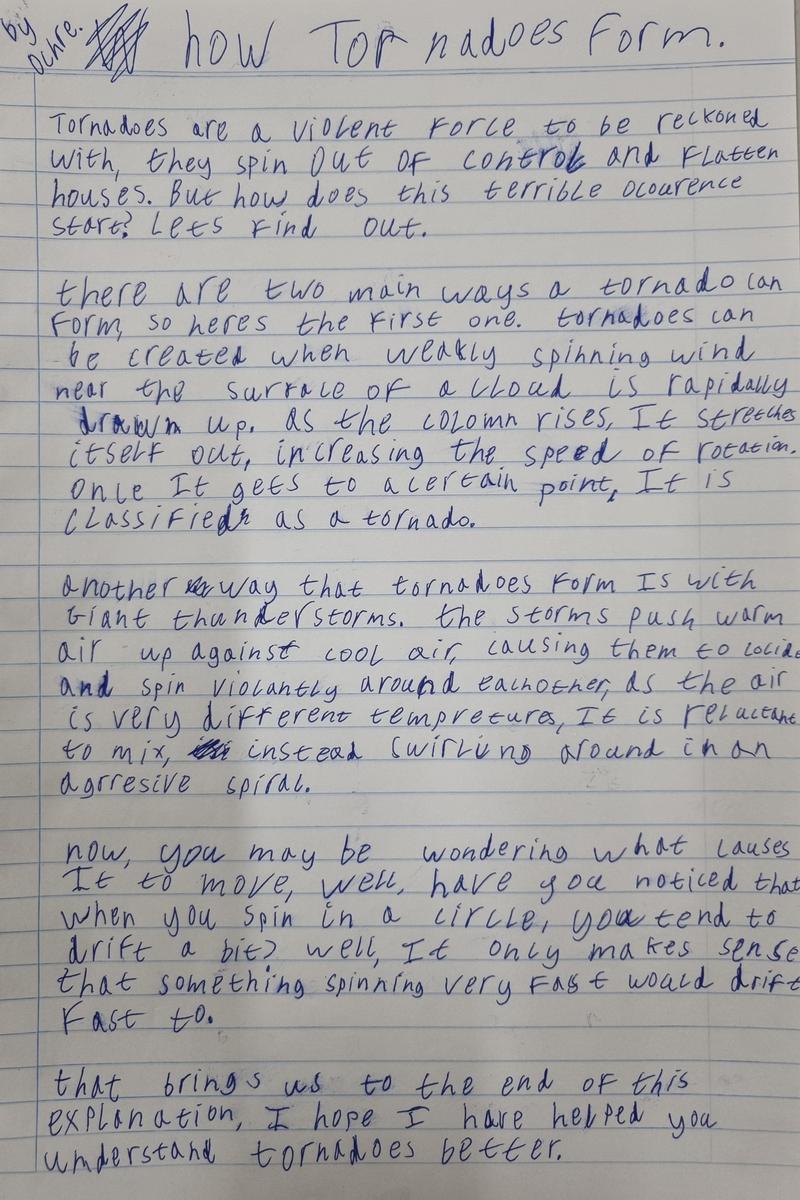 by Ochre.
how Tornadoes Form.
Tornadoes are a violent Force to be reckoned
with, they spin Out OF control and Flatten
houses. But how does this terrible ocourence
start? Lets Find out.
there are two main ways a tornado can
Form, so heres the First one. tornadoes can
be created when weakly spinning wind
near the surface OF a cloud is rapidally
drawn up. as the colomn rises, It stretches
itself out, increasing the speed of rotation.
Once It gets to a certain point, It is
classified as a tornado.
another way that tornadoes Form Is with
Giant thunderstorms. the storms push warm
air up against cool air, causing them to colide
and spin violantly around eachother, as the air
is very different tempretures, It is reluctant
to mix, instead swirling around in an
agrresive spiral.
now, you may be wondering what causes
It to move, well, have you noticed that
when you spin in a circle, you tend to
drift a bit? well, It only makes sense
that something spinning very Fast would drift
Fast to.
that brings us to the end of this
explanation, I hope I have helped you
understand tornadoes better.